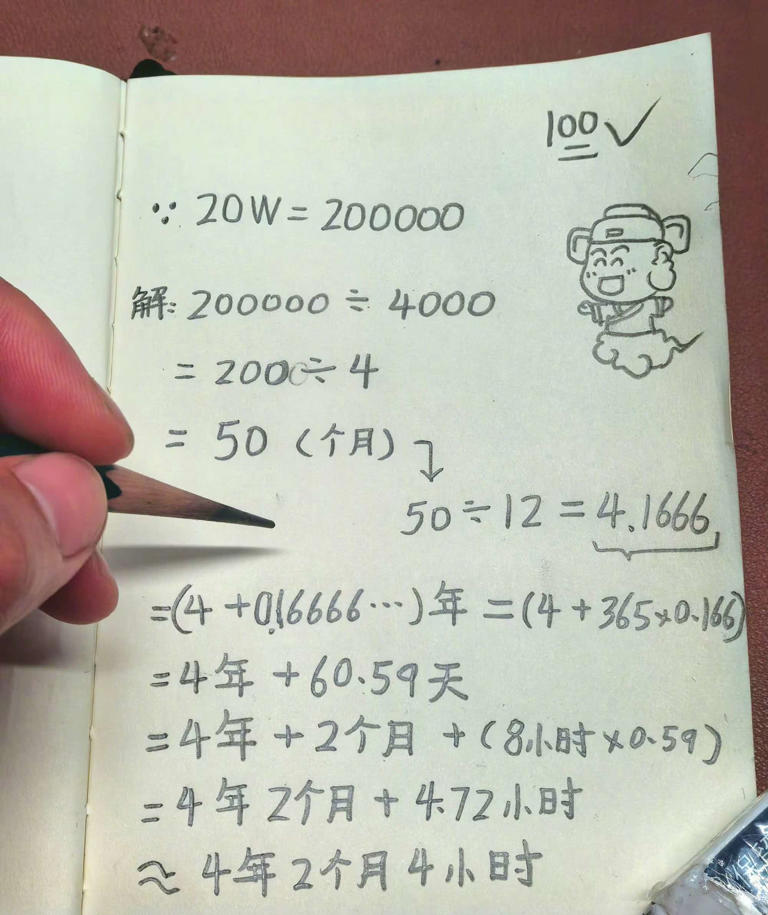 100✓
∵ 20W = 200000
解: 200000 ÷ 4000
= 200 ÷ 4
= 50 (个月)
50 ÷ 12 = 4.1666
=(4 + 0.16666…)年 =(4 + 365×0.166)
=4年 + 60.59天
=4年 + 2个月 + (8小时×0.59)
=4年2个月 + 4.72小时
≈ 4年2个月4小时